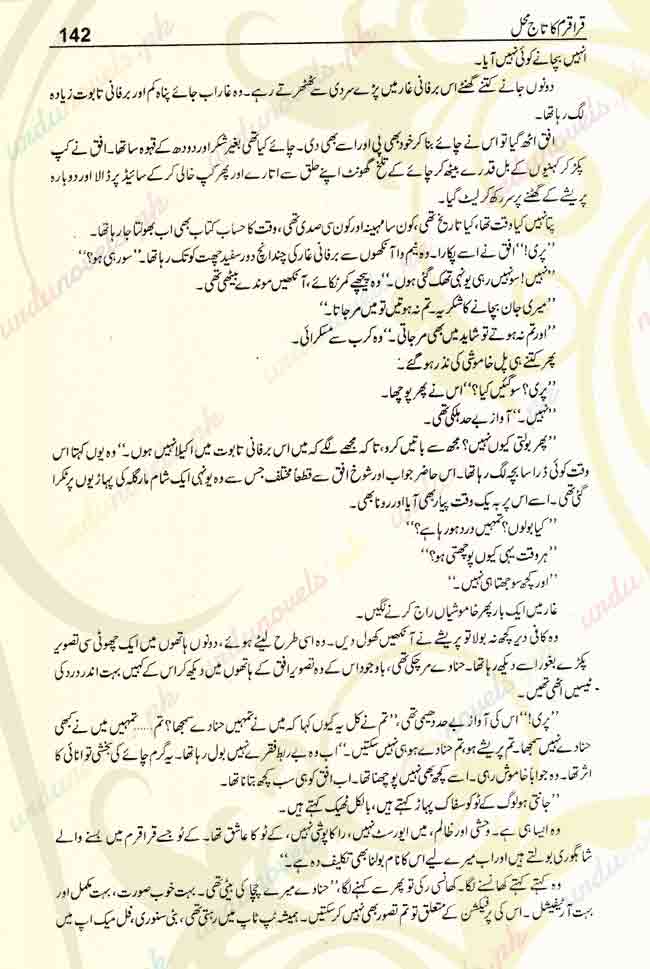 142
قراقرم کا تاج محل
انہیں بچانے کوئی نہیں آیا۔
دونوں جانے کتنے گھنٹے اس برفانی غار میں پڑے سردی سے ٹھٹھرتے رہے۔ وہ غار اب جائے پناہ کم اور برفانی تابوت زیادہ
لگ رہا تھا۔
افق اٹھ گیا تو اس نے چائے بنا کر خود بھی پی اور اسے بھی دی۔ چائے کیا تھی بغیر شکر اور دودھ کے قہوہ سا تھا۔ افق نے کپ
پکڑ کر کہنیوں کے بل قدرے بیٹھ کر چائے کے تلخ گھونٹ اپنے حلق سے اتارے اور پھر کپ خالی کر کے سائیڈ پر ڈالا اور دوبارہ
پریشے کے گھٹنے پر سر رکھ کر لیٹ گیا۔
پتا نہیں کیا وقت تھا، کیا تاریخ تھی، کون سا مہینہ اور کون سی صدی تھی، وقت کا حساب کتاب بھی اب بھولتا جا رہا تھا۔
”پری!“ افق نے اسے پکارا۔ وہ نیم وا آنکھوں سے برفانی غار کی چند انچ دور سفید چھت کو تک رہا تھا۔ ”سو رہی ہو؟“
”نہیں! سو نہیں رہی یونہی تھک گئی ہوں۔“ وہ پیچھے کمر ٹکائے، آنکھیں موندے بیٹھی تھی۔
”میری جان بچانے کا شکریہ۔ تم نہ ہوتیں تو میں مر جاتا۔“
”اور تم نہ ہوتے تو شاید میں بھی مر جاتی۔“ وہ کرب سے مسکرائی۔
پھر کتنے ہی پل خاموشی کی نذر ہو گئے۔
”پری؟ سو گئیں کیا؟“ اس نے پھر پوچھا۔
”نہیں۔“ آواز بے حد ہلکی تھی۔
”پھر بولتی کیوں نہیں؟ مجھ سے باتیں کرو، تا کہ مجھے لگے کہ میں اس برفانی تابوت میں اکیلا نہیں ہوں۔“ وہ یوں کہتا اس
وقت کوئی ڈرا سا بچہ لگ رہا تھا۔ اس حاضر جواب اور شوخ افق سے قطعاً مختلف جس سے وہ یونہی ایک شام مارگلہ کی پہاڑیوں پر ٹکرا
گئی تھی۔ اسے اس پر بہ یک وقت پیار بھی آیا اور رونا بھی۔
”کیا بولوں؟ تمہیں درد ہو رہا ہے؟“
”ہر وقت یہی کیوں پوچھتی ہو؟“
”اور کچھ سوجھتا ہی نہیں۔“
غار میں ایک بار پھر خاموشیاں راج کرنے لگیں۔
وہ کافی دیر کچھ نہ بولا تو پریشے نے آنکھیں کھول دیں۔ وہ اسی طرح لیٹے ہوئے، دونوں ہاتھوں میں ایک چھوٹی سی تصویر
پکڑے بغور اسے دیکھ رہا تھا۔ حنادے مر چکی تھی، باوجود اس کے وہ تصویر افق کے ہاتھوں میں دیکھ کر اس کے کہیں بہت اندر درد کی
ٹیسیں اٹھی تھیں۔
”پری!“ اس کی آواز بے حد دھیمی تھی، ”تم نے کل یہ کیوں کہا کہ میں نے تمہیں حنادے سمجھا؟ تم...... تمہیں میں نے کبھی
حنادے نہیں سمجھا۔ تم پریشے ہو، تم حنادے ہو ہی نہیں سکتیں۔“ اب وہ بے ربط فقرے نہیں بول رہا تھا۔ یہ گرم چائے کی بخشی توانائی کا
اثر تھا۔ وہ جواباً خاموش رہی۔ اسے کچھ بھی نہیں پوچھنا تھا۔ اب افق کو ہی سب کچھ بتانا تھا۔
”جانتی ہو لوگ کے ٹو کو سفاک پہاڑ کہتے ہیں، بالکل ٹھیک کہتے ہیں۔
وہ ایسا ہی ہے۔ وحشی اور ظالم، میں ایورسٹ نہیں، راکا پوشی نہیں، کے ٹو کا عاشق تھا۔ کے ٹو جسے قراقرم میں بسنے والے
شاہگوری بولتے ہیں اور اب میرے لیے اس کا نام بولنا بھی تکلیف دہ ہے۔“
وہ کہتے کہتے کھانسنے لگا۔ کھانسی رکی تو پھر سے کہنے لگا، ”حنادے میرے چچا کی بیٹی تھی۔ بہت خوب صورت، بہت مکمل اور
بہت آرٹیفیشل۔ اس کی پرفیکشن کے متعلق تو تم تصور بھی نہیں کر سکتیں۔ ہمیشہ ٹپ ٹاپ میں رہتی تھی، بنی سنوری، فل میک اپ میں
urdunovels.pk